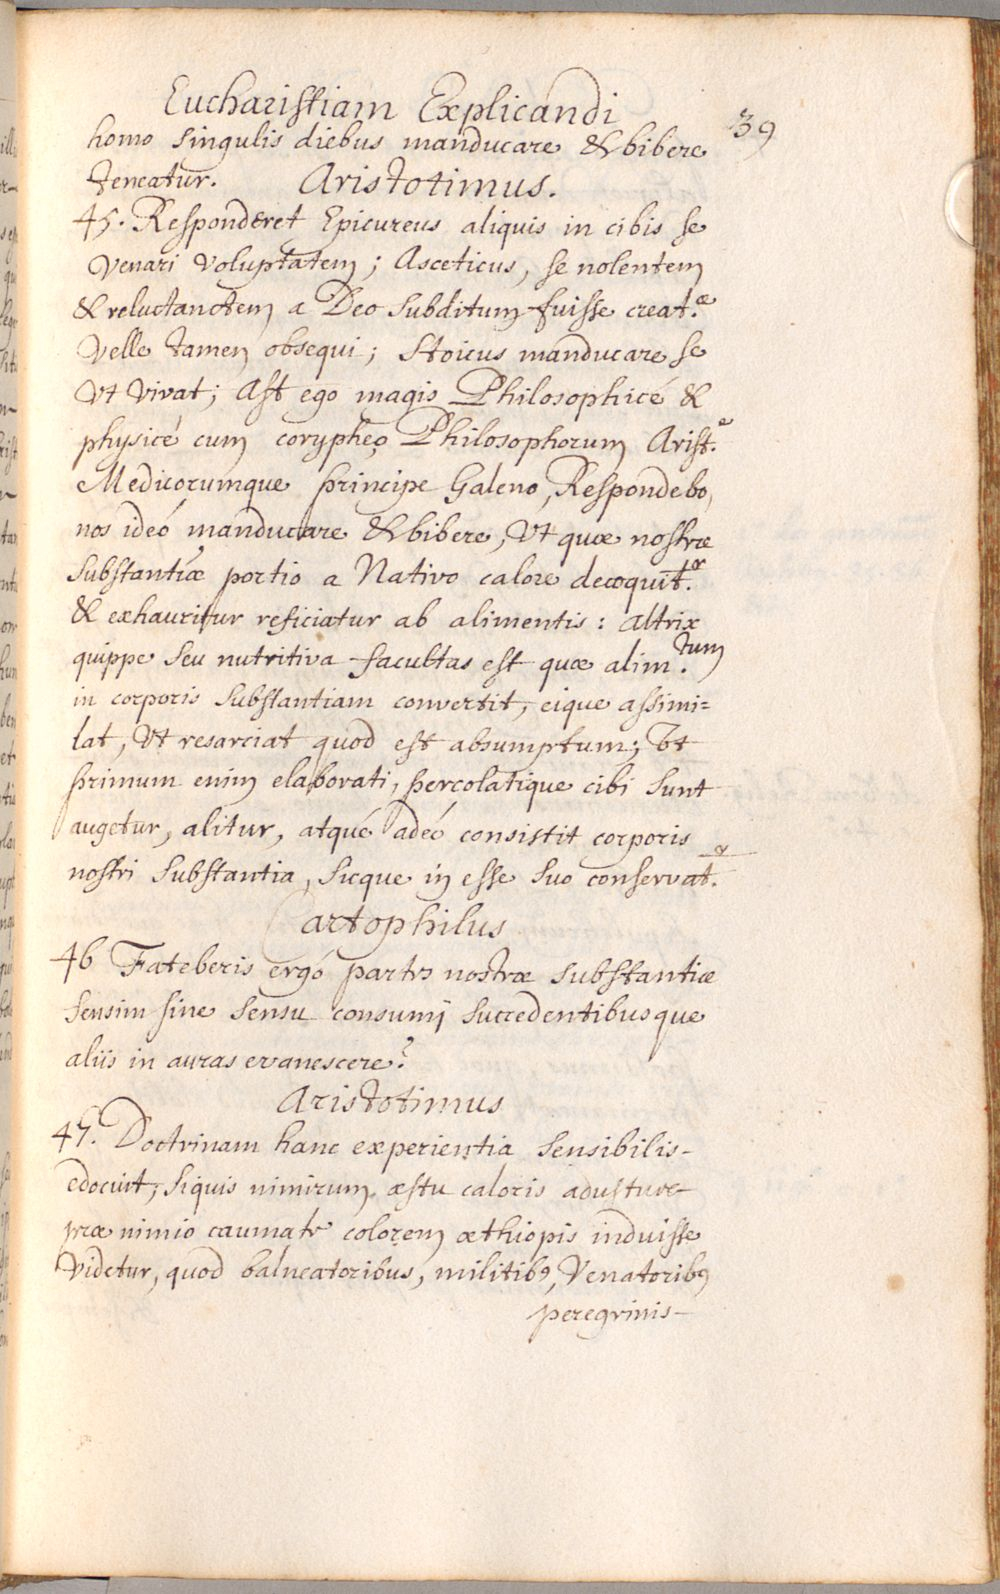 Eucharistiam Explicandi
39
homo singulis diebus manducare & bibere
teneatur. Aristotimus.
45. Responderet Epicureus aliquis in cibis se
Venari Voluptatem; Asceticus, se nolentem
& reluctanctem a Deo subditum fuisse creat.æ
Velle tamen obsequi; Stoicus manducare se
Vt Vivat; Ast ego magis Philosophicé &
physicé cum corypheo Philosophorum Arist.e
Medicorumque principe Galeno, Respondebo,
nos ideó manducare & bibere, Vt quæ nostræ
substantiæ portio a Nativo calore decoquit.r
& exhauritur reficiatur ab alimentis: altrix
quippe seu nutritiva facultas est quæ alim.tum
in corporis substantiam convertit, eique assimi=
lat, Vt resarciat quod est absumptum; Vt
primum enim elaborati, percolatique cibi sunt
augetur, alitur, atqué adeó consistit corporis
nostri substantia, sicque in esse suo conservat.r
Cartophilus
46 Fateberis ergó partes nostræ substantiæ
sensim sine sensu consumi succedentibusque
aliis in auras evanescere?
Aristotimus
47. Doctrinam hanc experientia sensibilis-
edocuit, siquis nimirum æstu caloris adustus
præ nimio caumate colorem æthiopis induisse
Videtur, quod balneatoribus, militib9, Venatorib9
peregrinis-